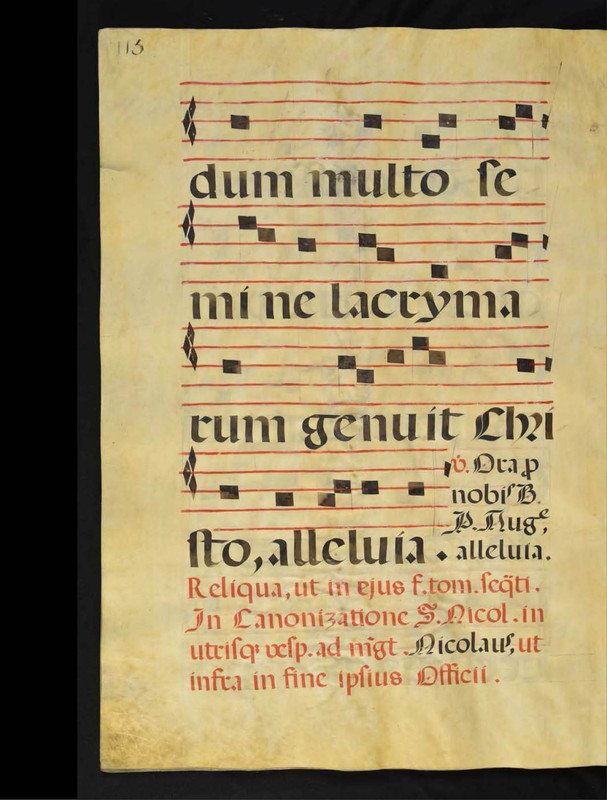 113
dum multo se
mi ne lacryma
rum genuit Chri
sto, alleluia .
℣. Ora ꝓ
nobiſ B.
P. Augᵉ,
alleluia.
Reliqua, ut in ejus f. tom. ſeq̃ti.
In Canonizatione S. Nicol. in
utriſqꝫ veſp. ad m̃gt. Nicolauſ, ut
infra in fine ipſius Officii.